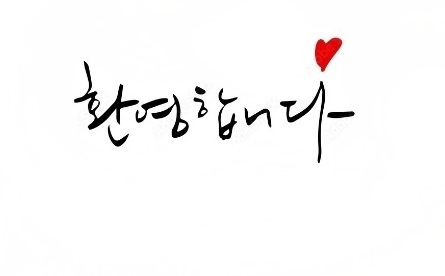 환영합니다